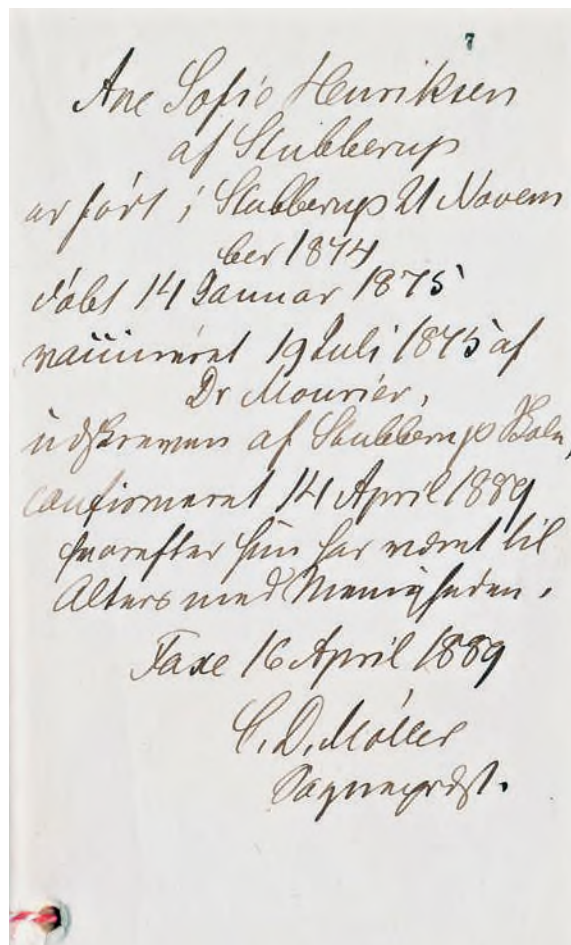 7
Ane Sofie Henriksen
af Stubberup
er født i Stubberup 21 Novem
ber 1874
døbt 14 Januar 1875
vaccineret 19 Juli 1875 af
Dr Mourier,
udskreven af Stubberup Skole,
confirmeret 14 April 1889
hvorefter hun har været til
Alters med Menigheden.
Faxe 16 April 1889
C. D. Møller
Sognepræst.